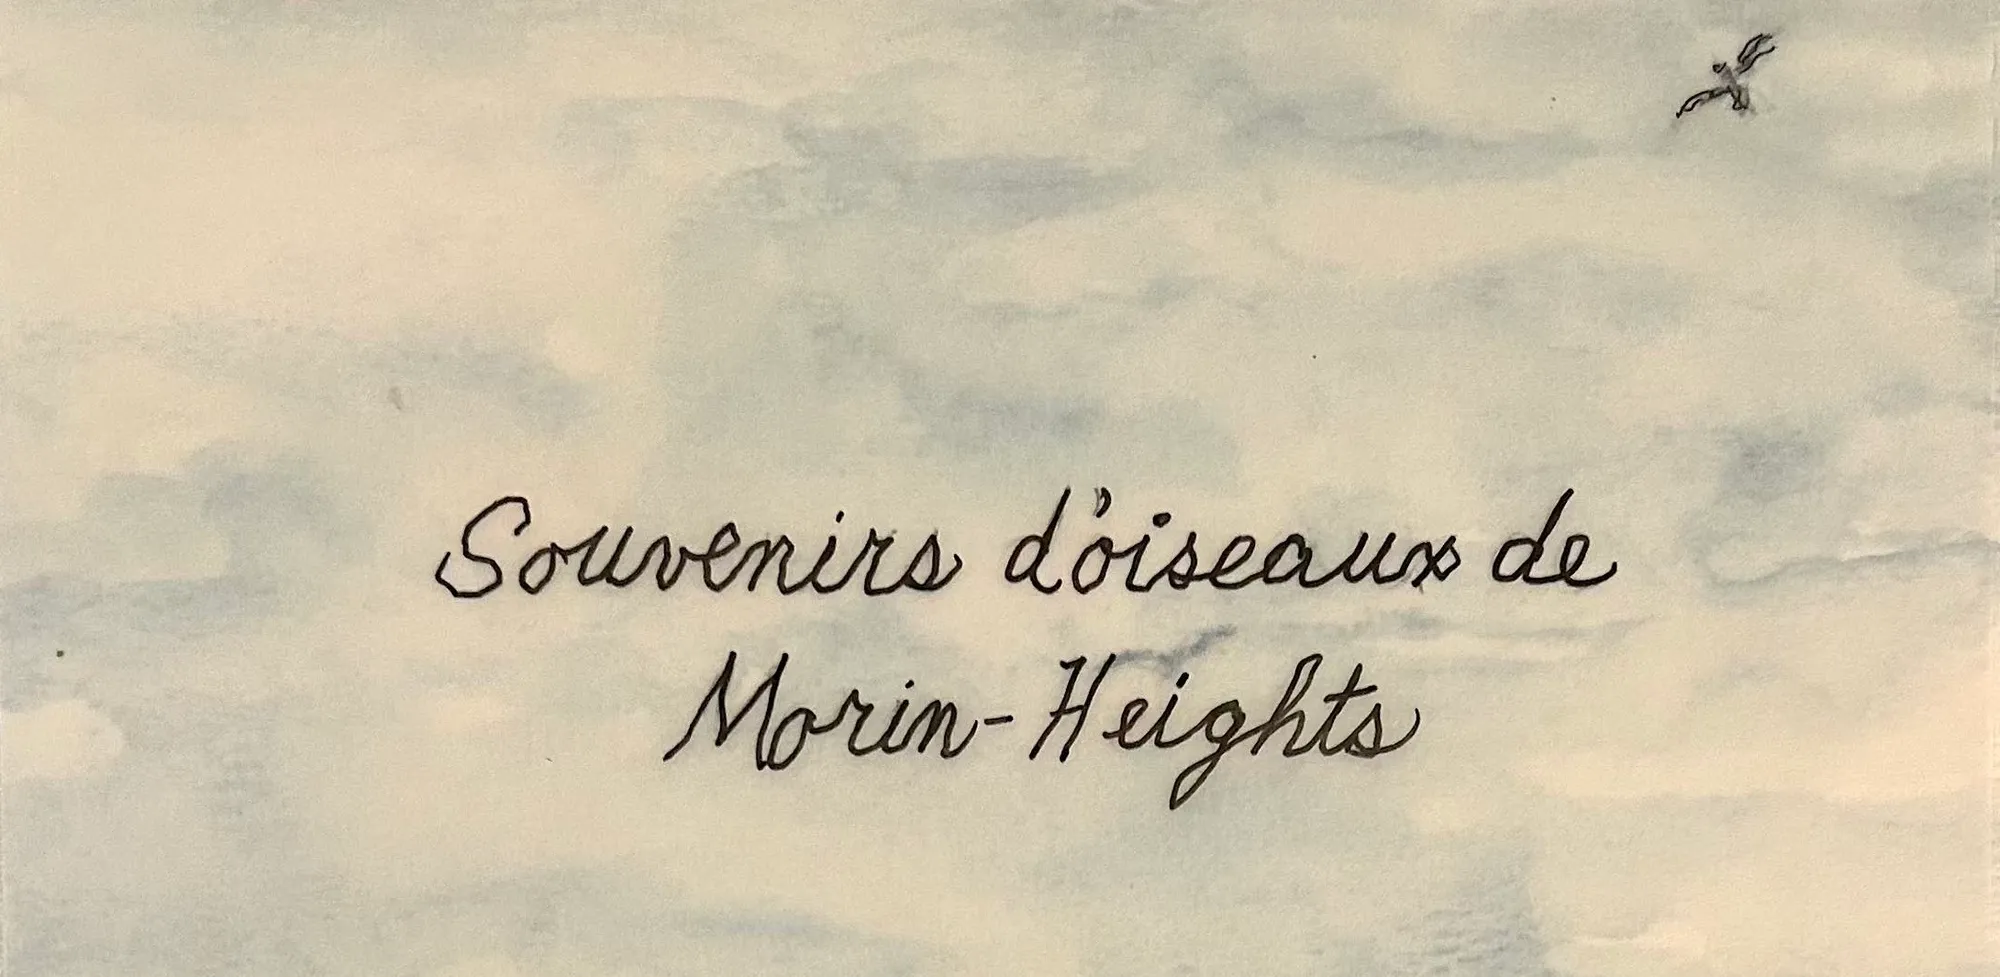 Souvenirs d'oiseaux de
Morin-Heights